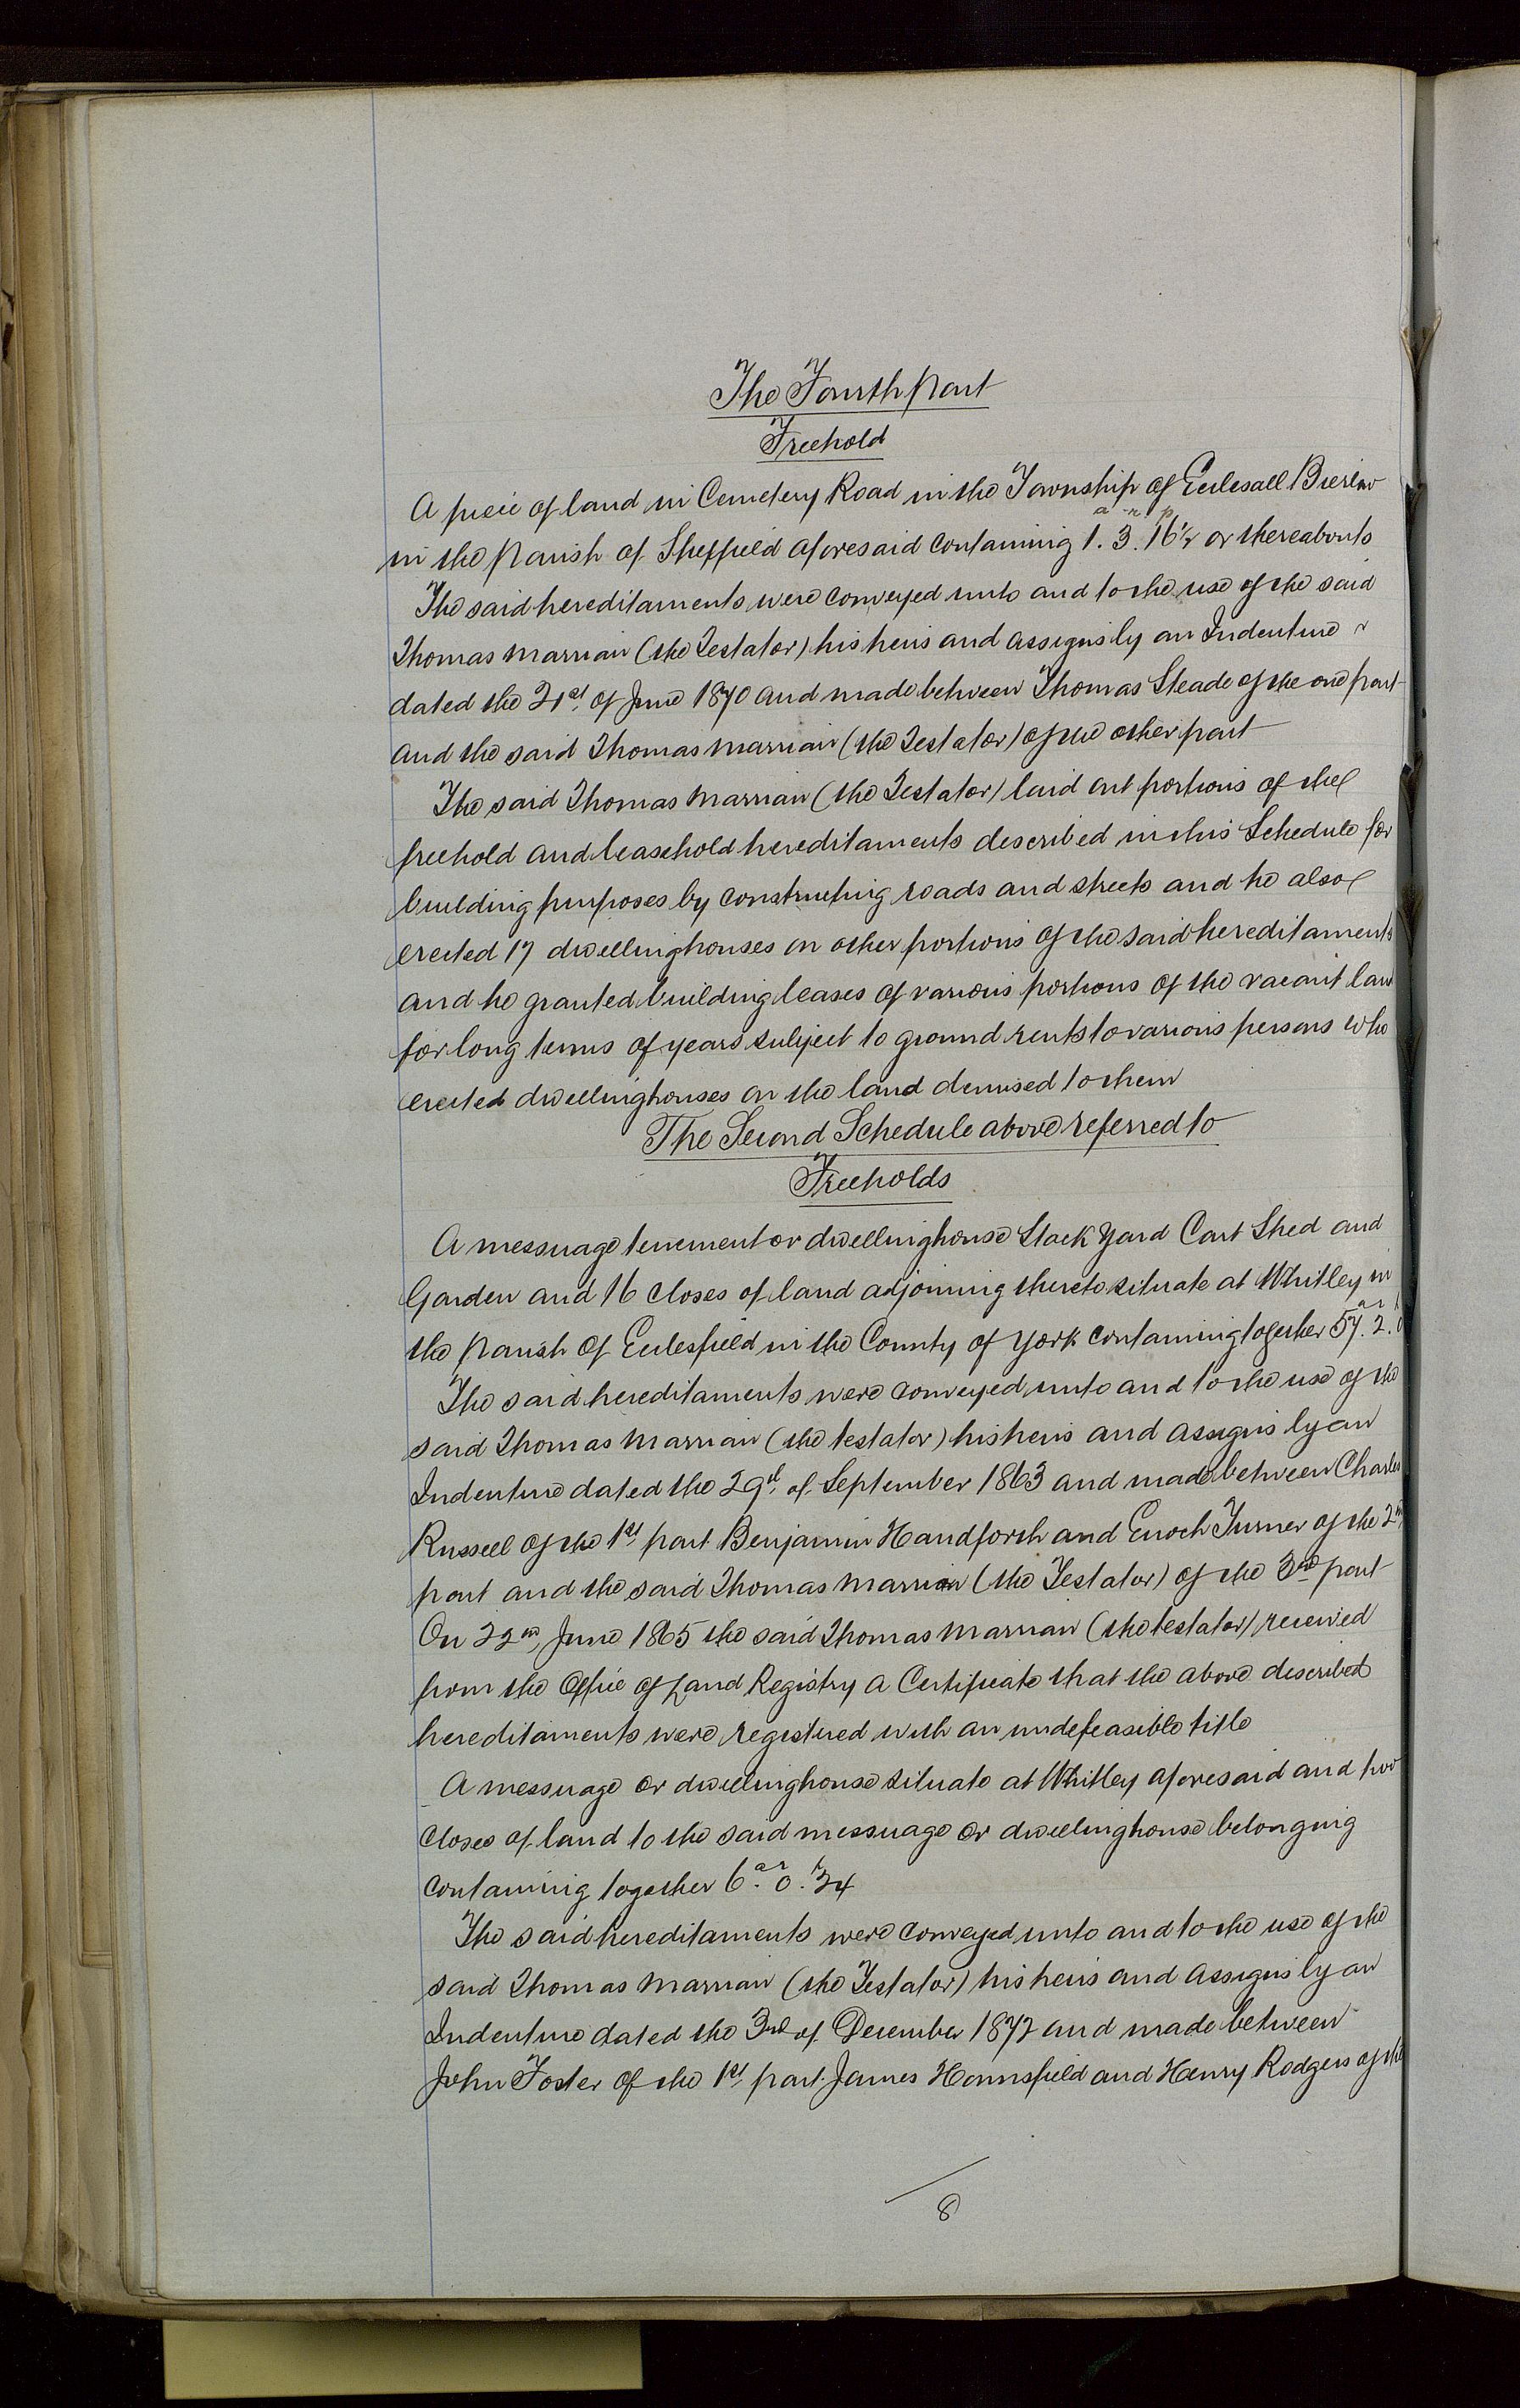 The Fourth Part
Freehold
A piece of land in Cemetery Road in the Township of Ecclesall Bierlow
in the Parish of Sheffield aforesaid containing 1a. 3r. 16½p or thereabouts
The said hereditaments were conveyed unto and to the use of the said
Thomas Marrian (the Testator) his heirs and assigns by an Indenture
dated the 21st of June 1870 and made between Thomas Steade of the one part
and the said Thomas Marrian (the Testator) of the other part
The said Thomas Marrian (the Testator) laid out portions of the
freehold and leasehold hereditaments described in this Schedule for
building purposes by constructing roads and streets and he also
erected 17 dwellinghouses on other portions of the said hereditaments
and he granted building leases of various portions of the vacant land
for long terms of years subject to ground rents to various persons who
erected dwellinghouses on the land demised to them
The Second Schedule above referred to
Freeholds
A messuage tenement or dwellinghouse Stack Yard Cart Shed and
Garden and 16 closes of land adjoining thereto situate at Whitley in
the Parish of Ecclesfield in the County of York containing together 57a. 2r.
The said hereditaments were conveyed unto and to the use of the
said Thomas Marrian (the testator) his heirs and assigns by an
Indenture dated the 29th of September 1863 and made between Charles
Russell of the 1st part Benjamin Handforth and Enoch Turner of the 2nd
part and the said Thomas Marrian (the Testator) of the 3rd part
On 22nd June 1865 the said Thomas Marrian (the testator) received
from the Office of Land Registry a Certificate that the above described
hereditaments were registered with an indefeasible title
A messuage or dwellinghouse situate at Whitley aforesaid and
closes of land to the said messuage or dwellinghouse belonging
containing together 6a. 0r. 34p
The said hereditaments were conveyed unto and to the use of the
said Thomas Marrian (the Testator) his heirs and assigns by an
Indenture dated the 3rd of December 1872 and made between
John Foster of the 1st part James Hounsfield and Henry Rodgers of the
8